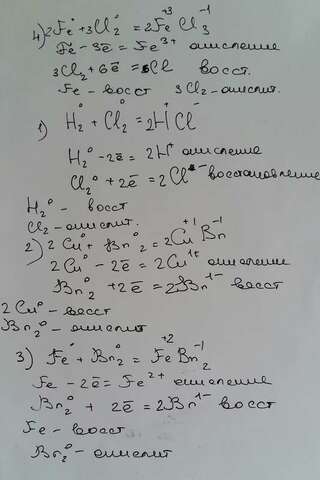 4) 2Fe⁰ + 3Cl₂⁰ = 2Fe⁺³Cl₃⁻¹
Fe⁰ - 3ē = Fe³⁺ окисление
3Cl₂ + 6ē = 6Cl⁻ восст.
Fe - восст 3Cl₂ - окислит.
1) H₂⁰ + Cl₂⁰ = 2H⁺Cl⁻
H₂⁰ - 2ē = 2H⁺ окисление
Cl₂⁰ + 2ē = 2Cl⁻ восстановление
H₂⁰ - восст
Cl₂ - окислит.
2) 2Cu⁰ + Bn₂⁰ = 2Cu⁺¹Bn⁻¹
2Cu⁰ - 2ē = 2Cu¹⁺ окисление
Bn₂⁰ + 2ē = 2Bn¹⁻ восст
2Cu⁰ - восст
Bn₂⁰ - окислит
3) Fe⁰ + Bn₂⁰ = Fe⁺²Bn₂⁻¹
Fe - 2ē = Fe²⁺ окисление
Bn₂⁰ + 2ē = 2Bn¹⁻ восст
Fe - восст
Bn₂⁰ - окислит